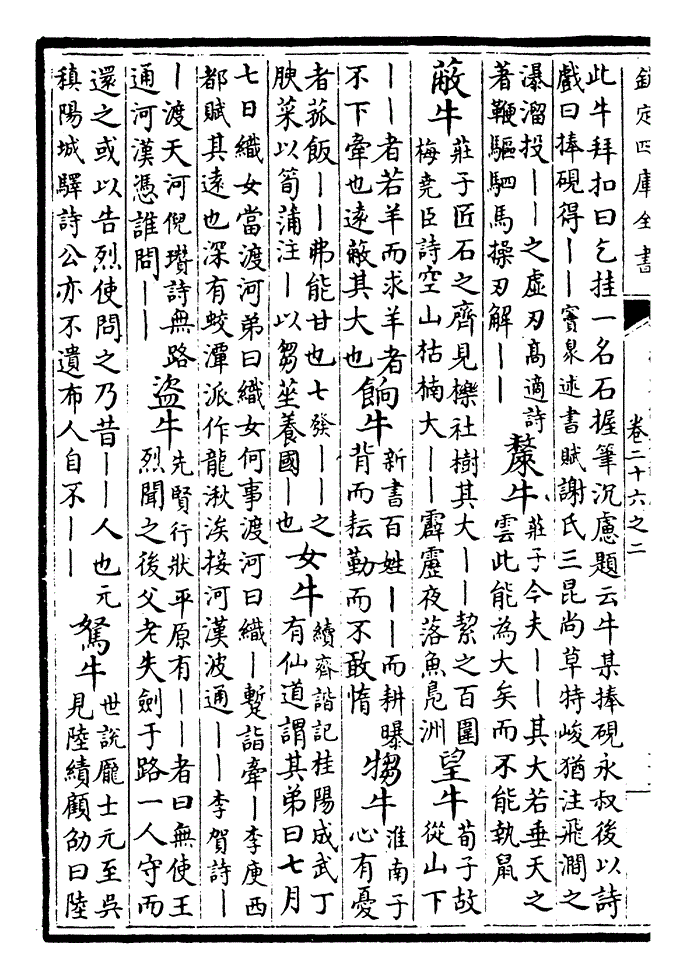 欽定四庫全書
卷二十六之二
此牛拜扣曰乞挂一名石握筆沉慮題云牛某捧硯永叔後以詩
戲曰捧硯得丨丨竇臮述書賦謝氏三昆尚草特峻猶注飛澗之
瀑溜投丨丨之虛刃高適詩
著鞭驅駟馬操刃解丨丨
犛牛
莊子今夫丨丨其大若垂天之
雲此能為大矣而不能執鼠
蔽牛
莊子匠石之齊見櫟社樹其大丨丨絜之百圍
梅堯臣詩空山枯楠大丨丨霹靂夜落魚鳧洲
望牛
荀子故
從山下
丨丨者若羊而求羊者
不下牽也遠蔽其大也
餉牛
新書百姓丨丨而耕曝
背而耘勤而不敢惰
犓牛
淮南子
心有憂
者菰飯丨丨弗能甘也七發丨丨之
腴菜以筍蒲注丨以芻莝養國丨也
女牛
續齊諧記桂陽成武丁
有仙道謂其弟曰七月
七日織女當渡河弟曰織女何事渡河曰織丨暫詣牽丨李庾西
都賦其遠也深有蛟潭派作龍湫涘接河漢波通丨丨李賀詩丨
丨渡天河倪瓚詩無路
通河漢憑誰問丨丨
盜牛
先賢行狀平原有丨丨者曰無使王
烈聞之後父老失劍于路一人守而
還之或以告烈使問之乃昔丨丨人也元
稹陽城驛詩公亦不遺布人自不丨丨
駑牛
世說龐士元至吳
見陸績顧劭曰陸